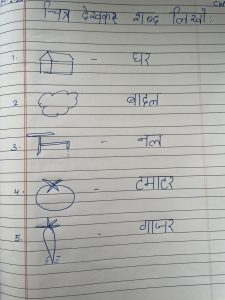 C.W
चित्र देखकर शब्द लिखो :
1. - घर
2. - बादल
3. - नल
4. - टमाटर
5. - गाजर